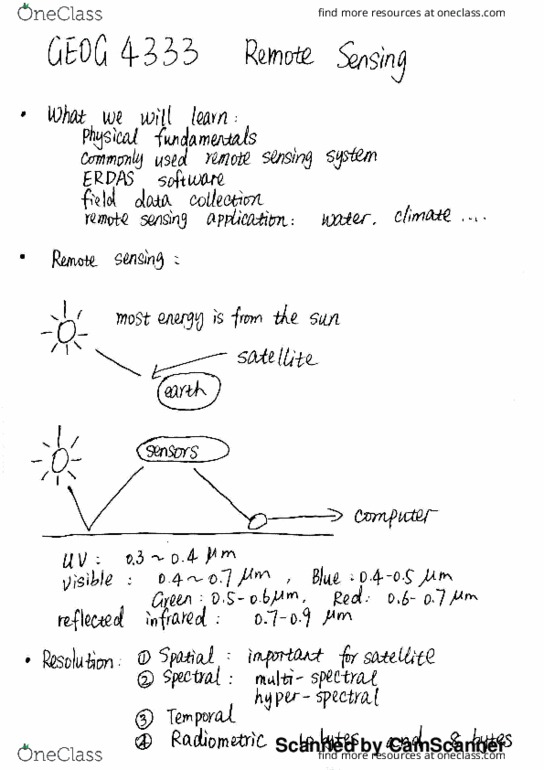 OneClass
find more resources at oneclass.com
GEOG 4333 Remote Sensing
• What we will learn:
physical fundamentals
commonly used remote sensing system
ERDAS software
field data collection
remote sensing application: water. climate ....
• Remote sensing:
most energy is from the sun
satellite
earth
sensors
computer
UV: 0.3 ~ 0.4 µm
visible: 0.4 ~ 0.7 µm, Blue: 0.4-0.5 µm
Green: 0.5-0.6 µm, Red: 0.6-0.7 µm
reflected infrared: 0.7-0.9 µm
• Resolution: ① Spatial: important for satellite
② Spectral: multi-spectral
hyper-spectral
③ Temporal
④ Radiometric and 8 bytes
Scanned by CamScanner
OneClass
find more resources at oneclass.com